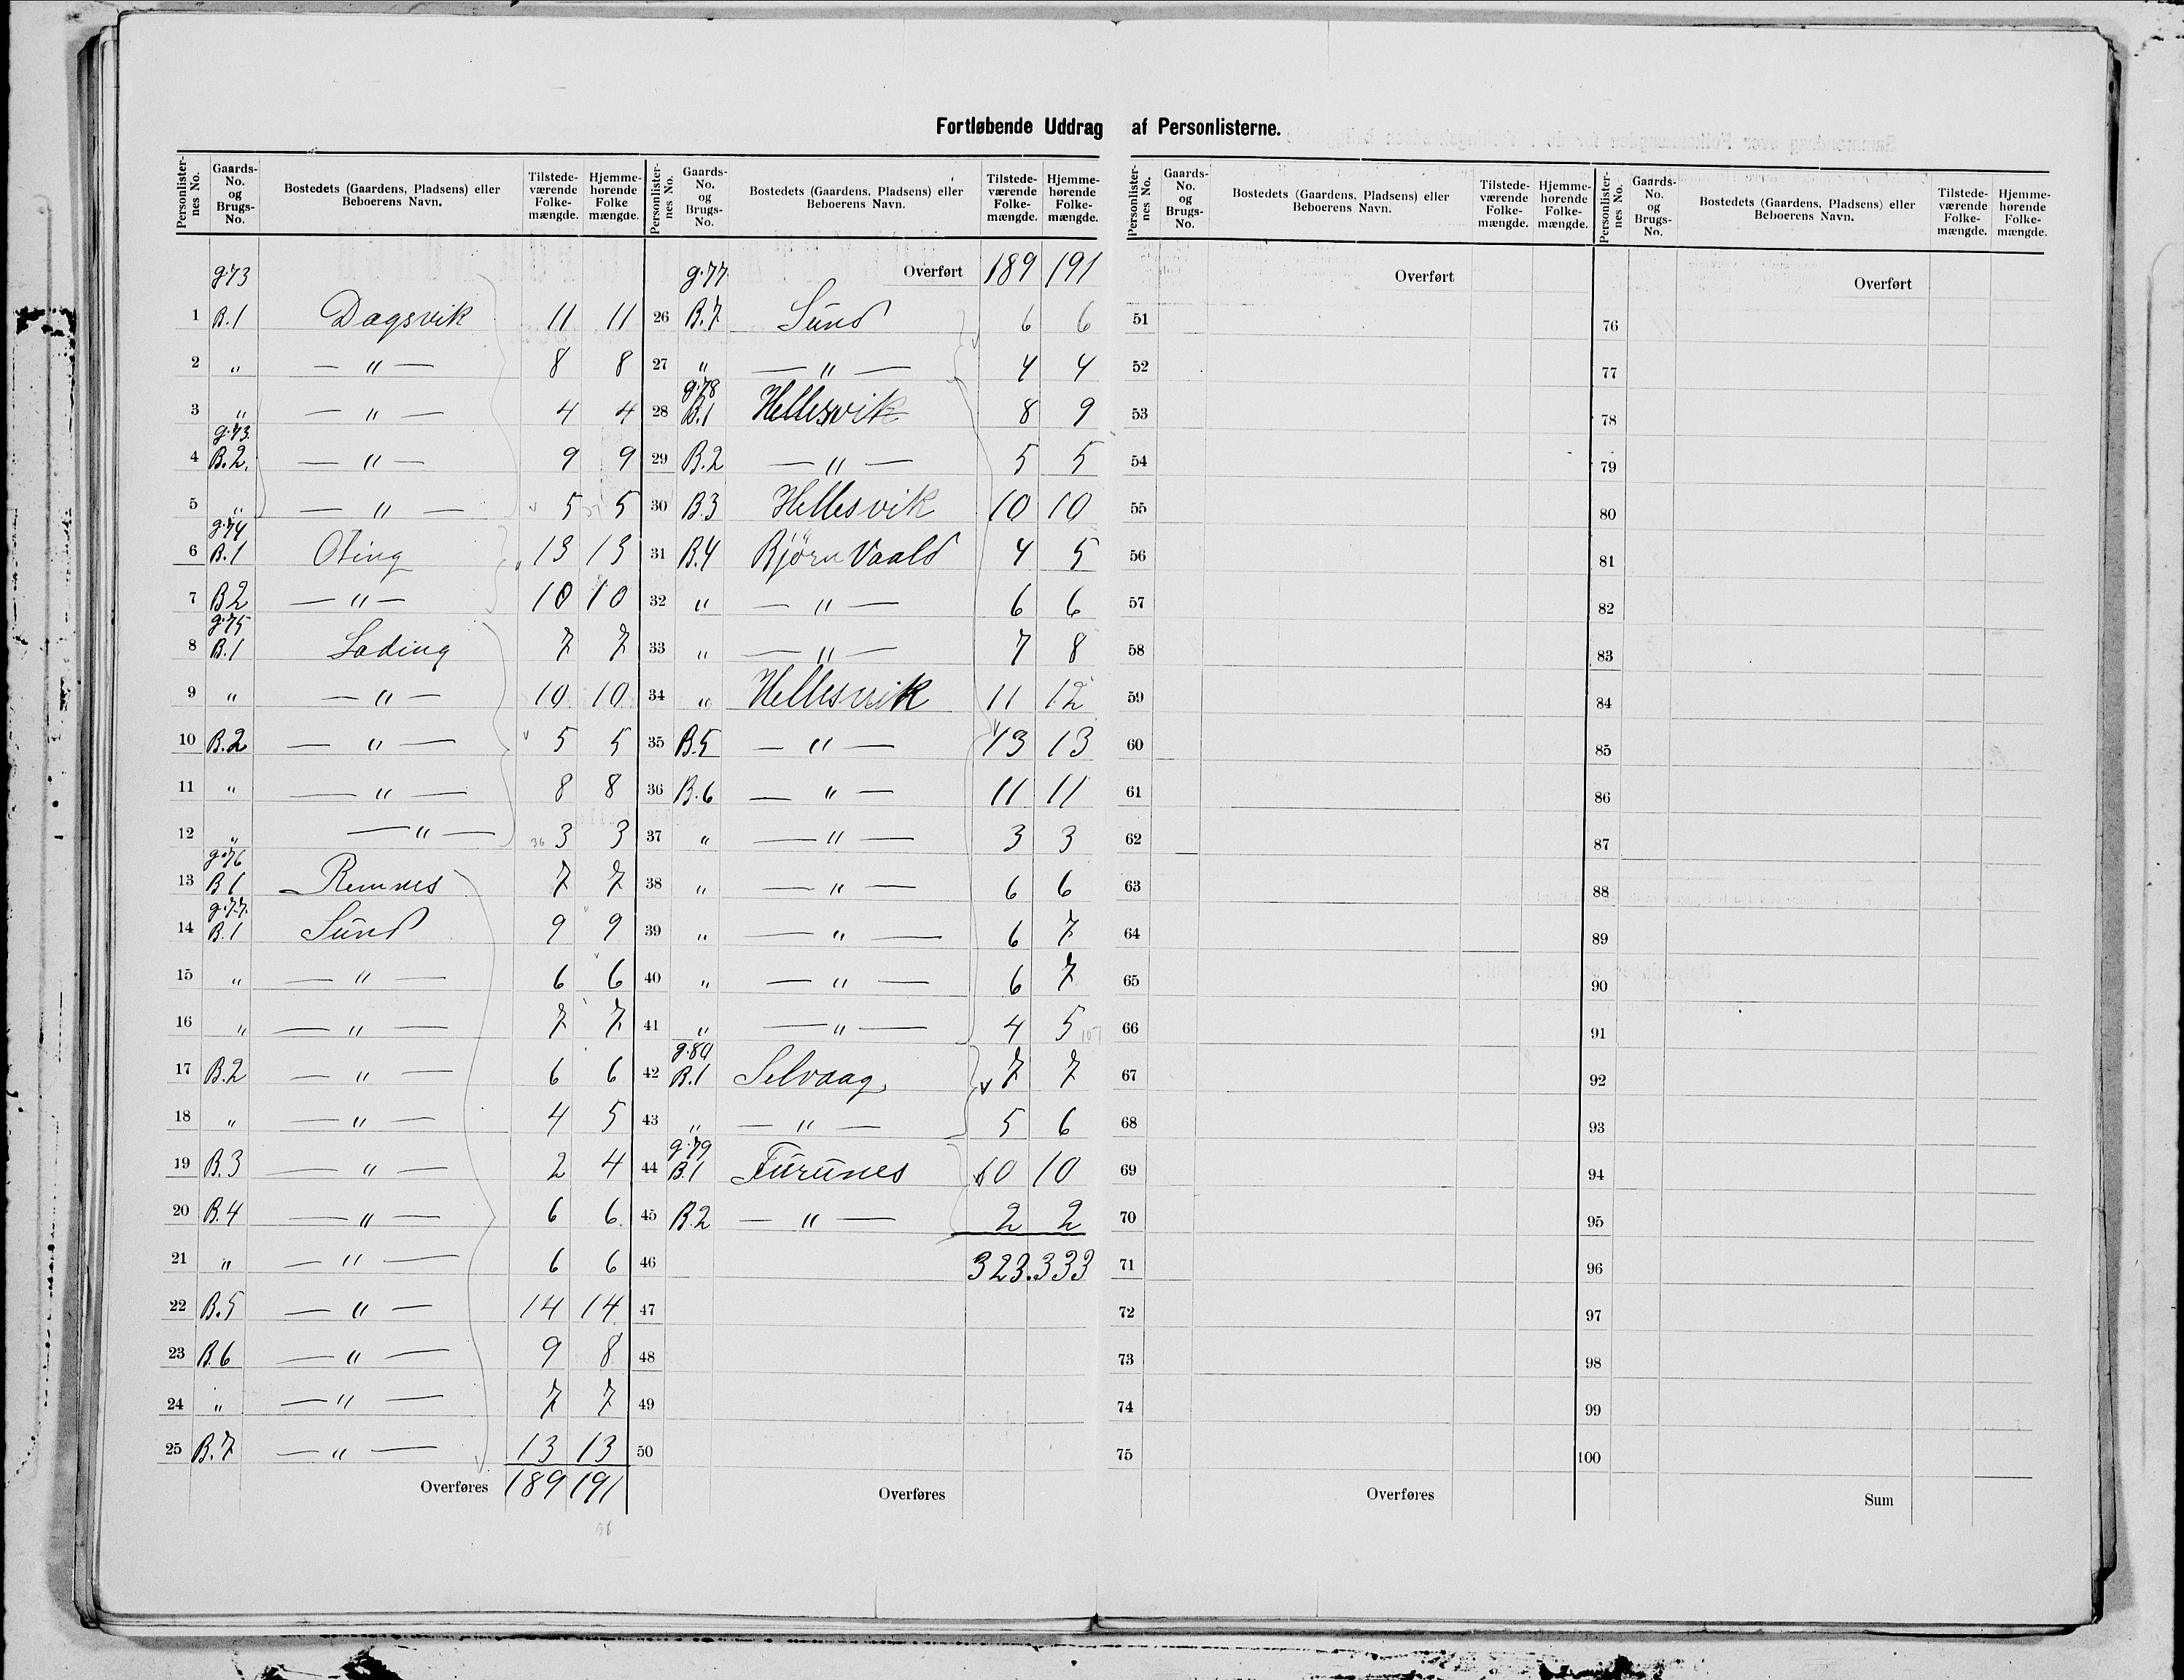 Fortløbende Uddrag af Personlisterne.
Personlisternes No. Gaards-No. og Brugs-No. Bostedets (Gaardens, Pladsens) eller Beboerens Navn. Tilstedeværende Folkemængde. Hjemmehørende Folkemængde.
g.73
1 B.1 Dagsvik 11 11
2 " — " — 8 8
3 " — " — 4 4
g.73.
4 B.2. — " — 9 9
5 " — " — 5 5
g.74
6 B.1 Oting 13 13
7 B2 — " — 10 10
g.75
8 B.1 Lading 7 7
9 " — " — 10 10
10 B.2 — " — 5 5
11 " — " — 8 8
12 " — " — 36 3 3
g.76
13 B1 Remnes 7 7
g.77.
14 B.1 Sund 9 9
15 " — " — 6 6
16 " — " — 7 7
17 B.2 — " — 6 6
18 " — " — 4 5
19 B.3 — " — 2 4
20 B.4 — " — 6 6
21 " — " — 6 6
22 B.5 — " — 14 14
23 B.6 — " — 9 8
24 " — " — 7 7
25 B.7 — " — 13 13
Overføres 189 191
98
Personlisternes No. Gaards-No. og Brugs-No. Bostedets (Gaardens, Pladsens) eller Beboerens Navn. Tilstedeværende Folkemængde. Hjemmehørende Folkemængde.
g.77 Overført 189 191
26 B.7 Sund 6 6
27 " — " — 4 4
g.78
28 B.1 Hellesvik 8 9
29 B.2 — " — 5 5
30 B.3 Hellesvik 10 10
31 B.4 Bjørn Vaald 4 5
32 " — " — 6 6
33 " — " — 7 8
34 " Hellesvik 11 12
35 B.5 — " — 13 13
36 B.6 — " — 11 11
37 " — " — 3 3
38 " — " — 6 6
39 " — " — 6 7
40 " — " — 6 7
41 " — " — 4 5 107
g.80
42 B.1 Selvaag 7 7
43 " — " — 5 6
g.79
44 B.1 Furunes 10 10
45 B.2 — " — 2 2
46 323.333
47
48
49
50
Overføres
Personlisternes No. Gaards-No. og Brugs-No. Bostedets (Gaardens, Pladsens) eller Beboerens Navn. Tilstedeværende Folkemængde. Hjemmehørende Folkemængde.
Overført
51
52
53
54
55
56
57
58
59
60
61
62
63
64
65
66
67
68
69
70
71
72
73
74
75
Overføres
Personlisternes No. Gaards-No. og Brugs-No. Bostedets (Gaardens, Pladsens) eller Beboerens Navn. Tilstedeværende Folkemængde. Hjemmehørende Folkemængde.
Overført
76
77
78
79
80
81
82
83
84
85
86
87
88
89
90
91
92
93
94
95
96
97
98
99
100
Sum